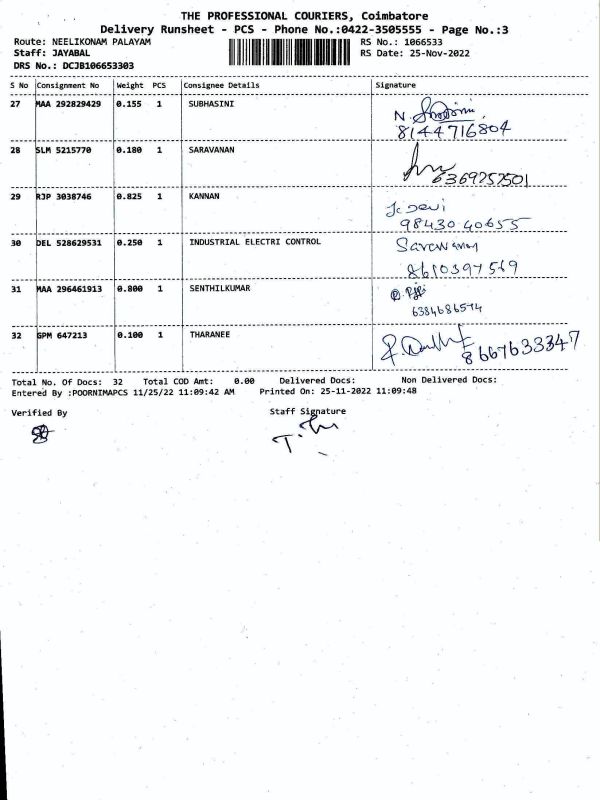 THE PROFESSIONAL COURIERS, Coimbatore
Delivery Runsheet - PCS - Phone No.:0422-3505555 - Page No.:3
Route: NEELIKONAM PALAYAM
RS No.: 1066533
Staff: JAYABAL
RS Date: 25-Nov-2022
DRS No.: DCJB106653303
S No Consignment No Weight PCS Consignee Details Signature
27 MAA 292829429 0.155 1 SUBHASINI
8144716804
28 SLM 5215770 0.180 1 SARAVANAN
6369257501
29 RJP 3038746 0.825 1 KANNAN
J. Devi
98430 40655
30 DEL 528629531 0.250 1 INDUSTRIAL ELECTRI CONTROL
Saravanan
8610397569
31 MAA 296461913 0.800 1 SENTHILKUMAR
6384686574
32 GPM 647213 0.100 1 THARANEE
8667633347
Total No. Of Docs: 32 Total COD Amt: 0.00 Delivered Docs: Non Delivered Docs:
Entered By :POORNIMAPCS 11/25/22 11:09:42 AM Printed On: 25-11-2022 11:09:48
Verified By
Staff Signature